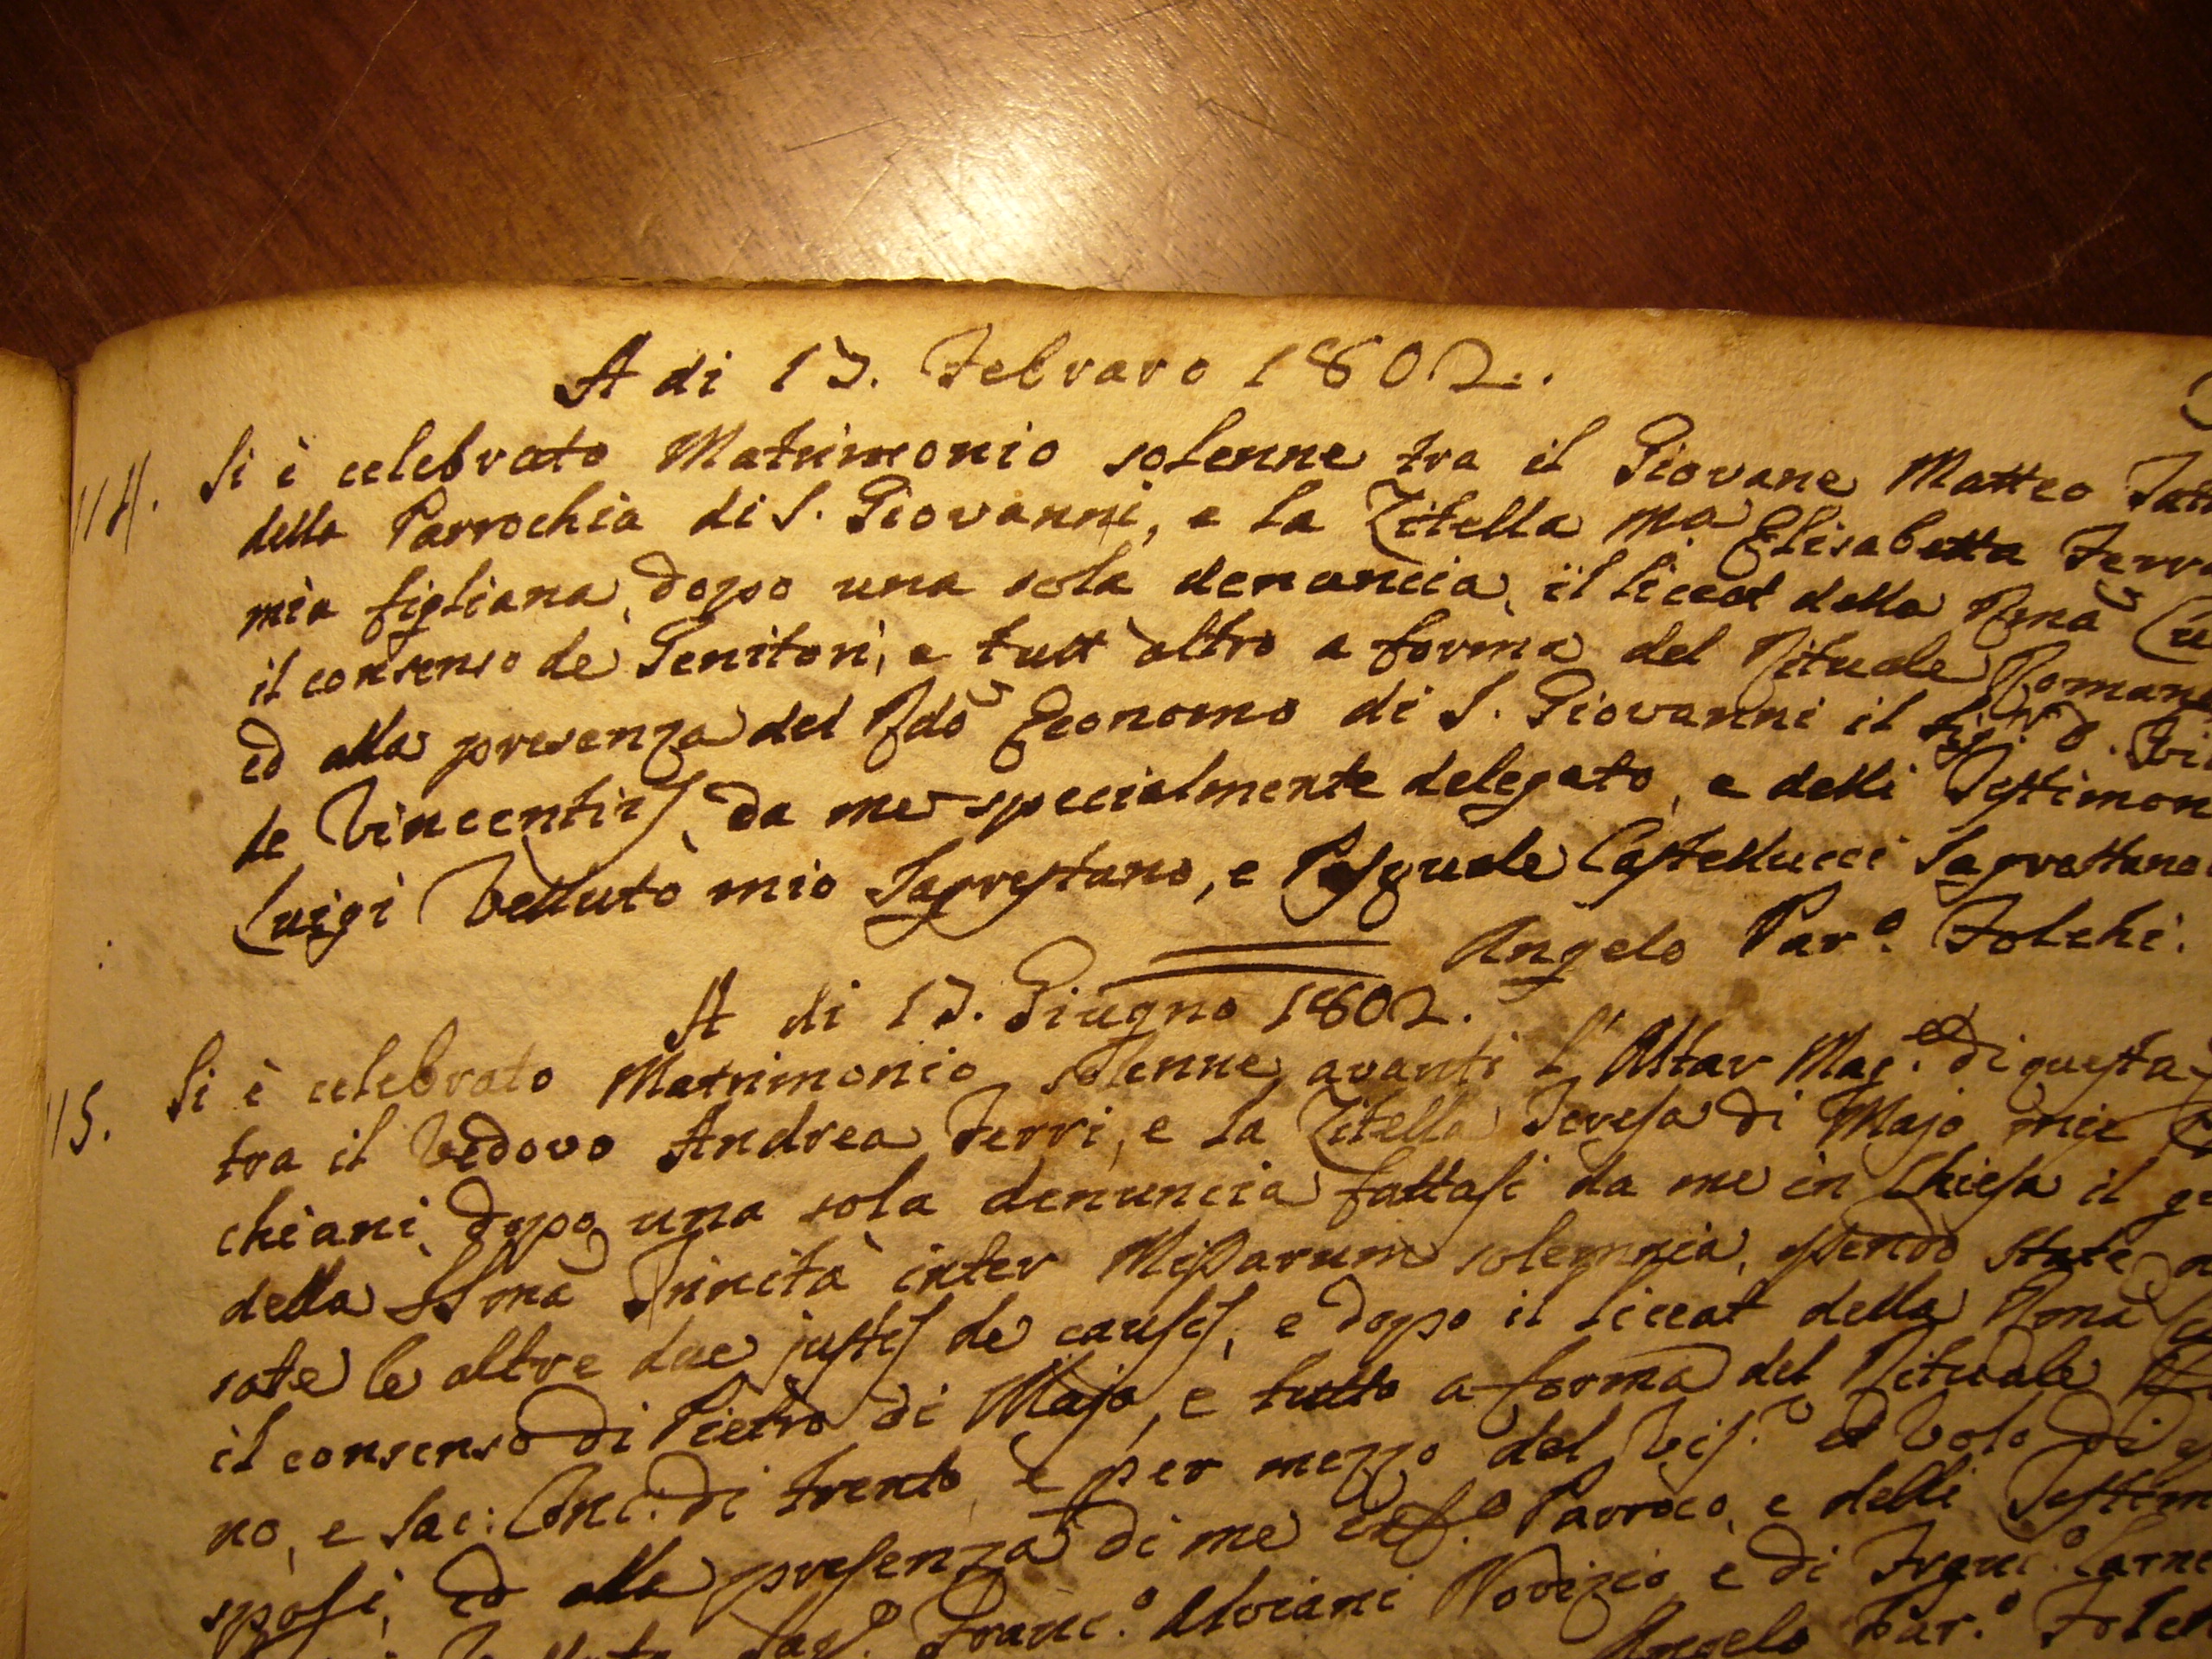 A di 13. Febraro 1802.
114. Si è celebrato Matrimonio solenne tra il Giovane Matteo
della Parrochia di S. Giovanni, e la Zitella Ma. Elisabetta
mia figliana, dopo una sola denuncia, il liceat della Rma
il consenso de' Genitori, e tutt'altro a forma del Rituale Romano
ed alla presenza del Rdo Economo di S. Giovanni il Sig.r D.
de Vincentiis, da me specialmente delegato, e delli Testimon
Luigi Velluto mio Sagrestano, e Pasquale Castellucci Sagrastano
Angelo Par.o Folchi.
A di 13. Giugno 1802.
115. Si è celebrato Matrimonio solenne avanti l'Altar Mag.e di questa
tra il Vedovo Andrea Ferri, e la Zitella Teresa di Majo miei
chiani, dopo una sola denuncia fattasi da me in Chiesa il
della SSma Trinità inter Missarum solemnia, essendo state
sate le altre due justis de causis, e dopo il liceat della Rma
il consenso di Pietro di Majo, e tutto a forma del Rituale
no, e Sac: Conc: di Trento, e per mezzo del Vis.o et Volo di
sposi, ed alla presenza di me inf.o Parroco, e delli Testim
Franc.o Alviani Nodizio e di Franc.o
Angelo Par.o